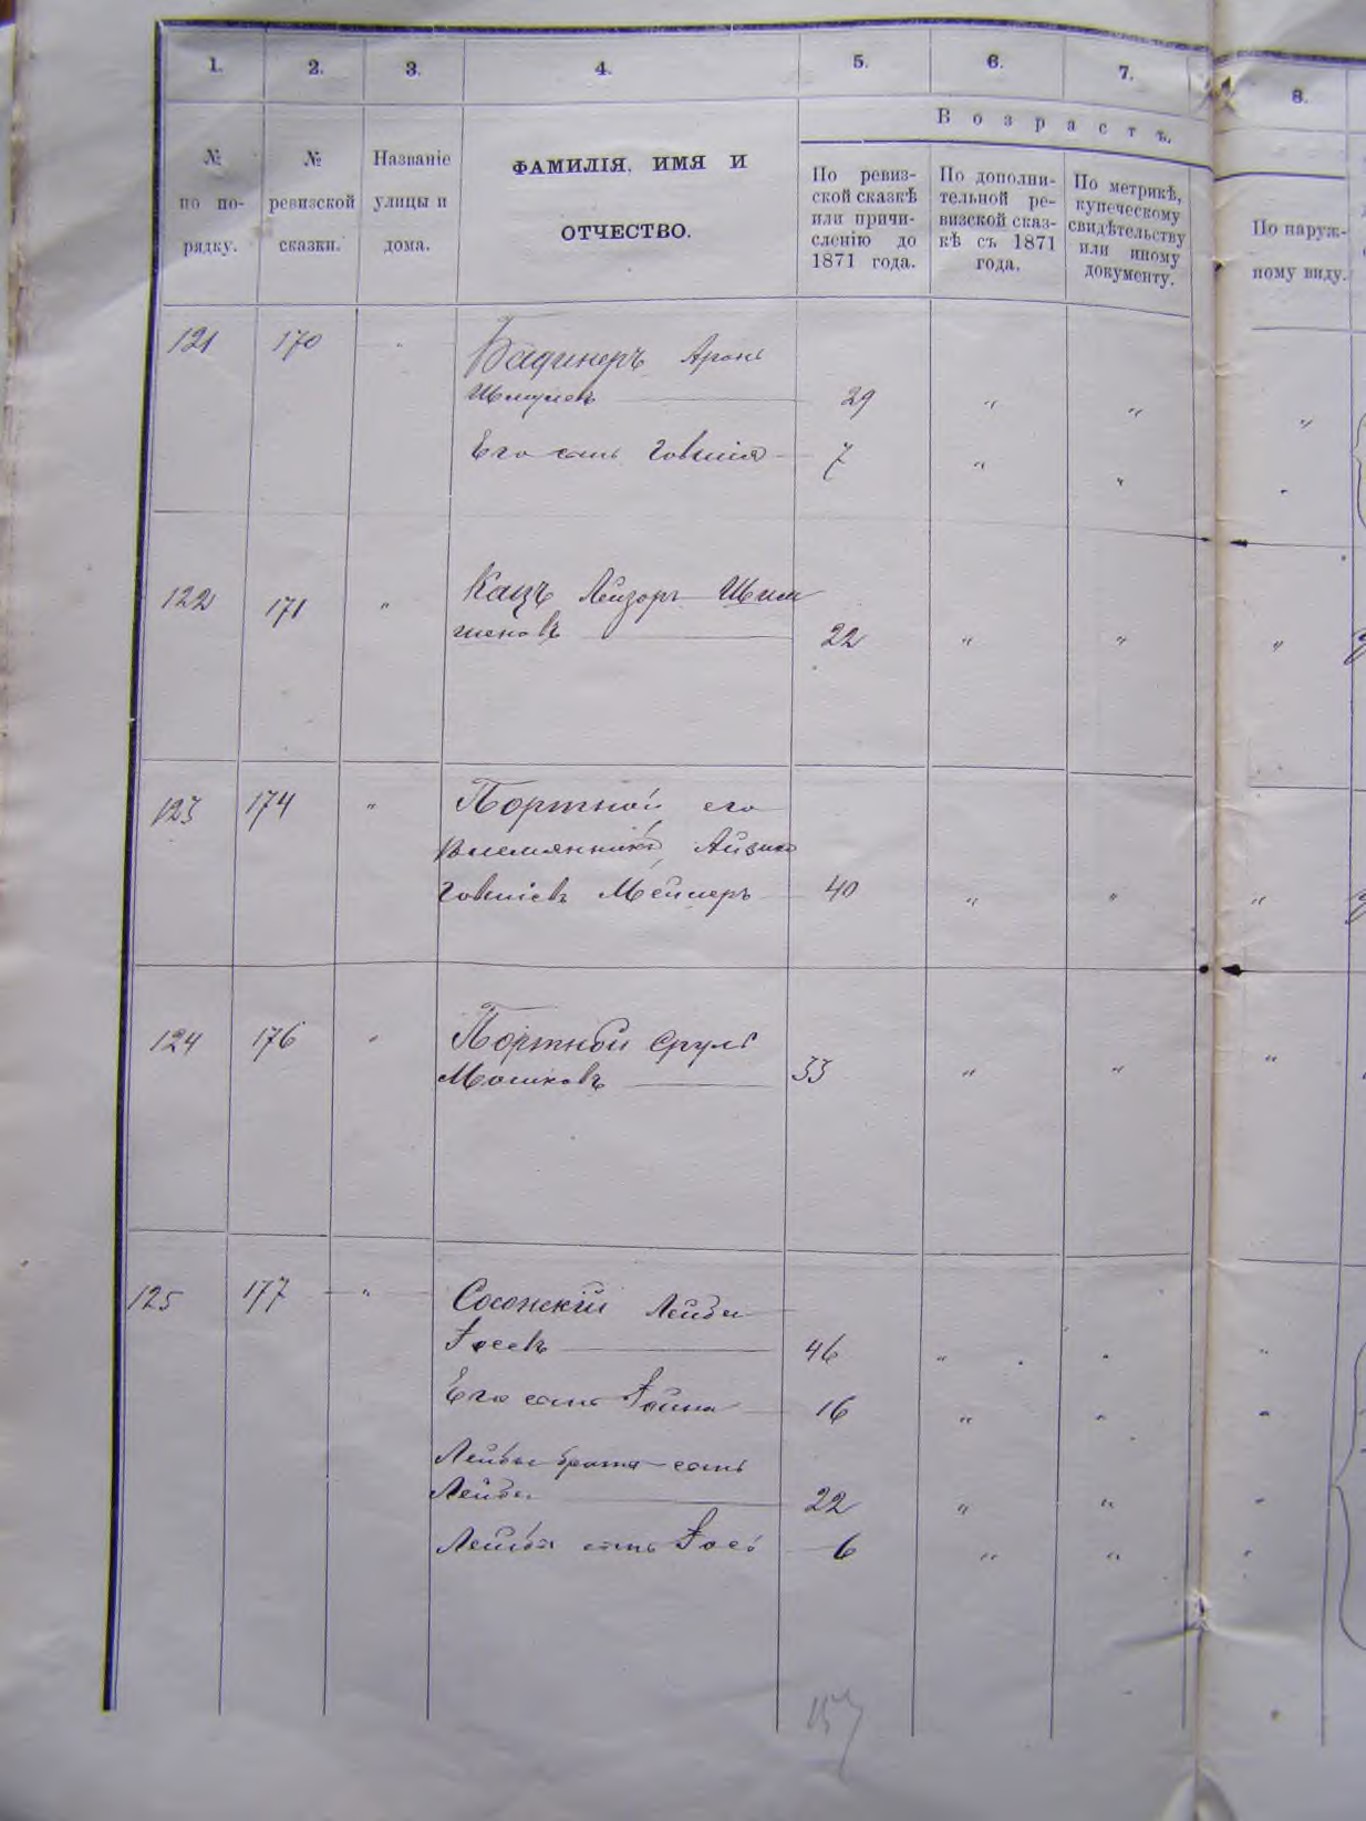 1. 2. 3. 4. 5. 6. 7. 8.
Возрастъ.
№ по по-рядку.
№ ревизской сказки.
Названіе улицы и дома.
ФАМИЛІЯ, ИМЯ И
ОТЧЕСТВО.
По ревиз-
ской сказкѣ
или причи-
сленію до
1871 года.
По дополни-
тельной ре-
визской сказ-
кѣ съ 1871
года.
По метрикѣ,
купеческому
свидѣтельству
или иному
документу.
По наруж-
ному виду.
121 170 Аронъ
Шмулевъ 29 " " "
Его сынъ Говшія 7 " " "
122 171 " Кацъ Лейзоръ Шим
шоновъ 22 " " "
123 174 " Портной его
племянникъ Айзикъ
Говшіевъ Мейлеръ 40 " " "
124 176 " Портной Сруль
Мошковъ 33 " " "
125 177 " Сосонскій Лейба
Іосевъ 46 " " "
Его сынъ Іойна 16 " " "
Лейбы брата сынъ
Лейба 22 " " "
Лейбы сынъ Іось 6 " " "